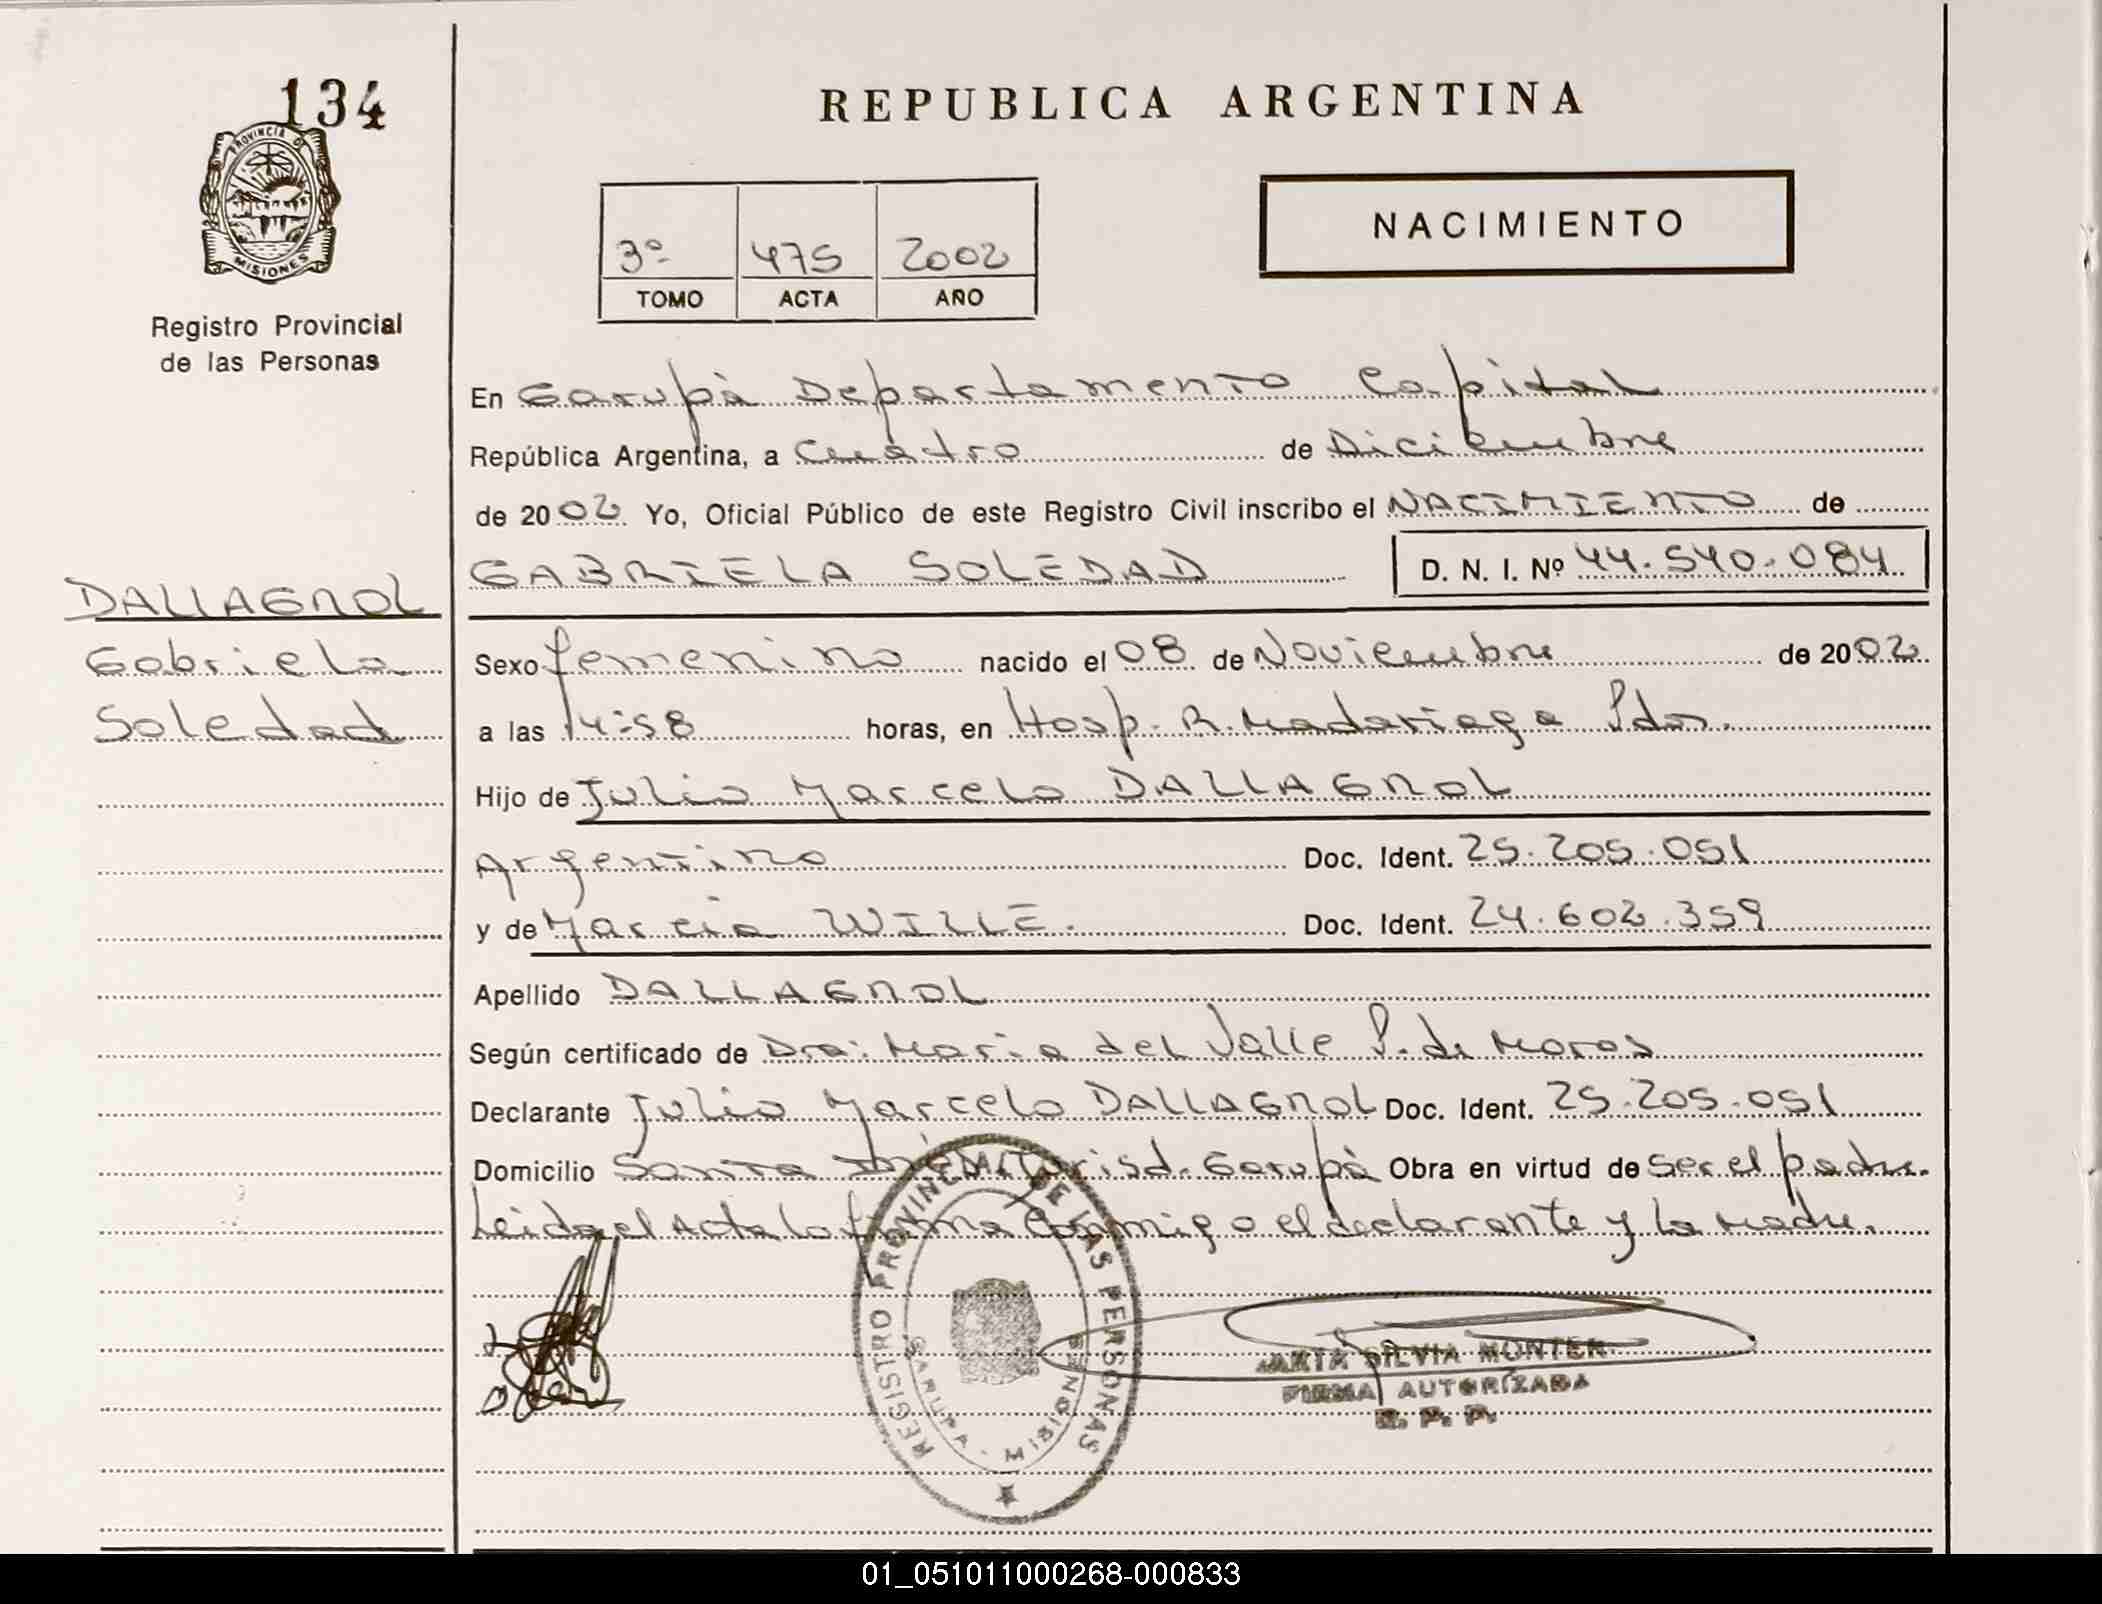 134
PROVINCIA D
MISIONES
Registro Provincial
de las Personas
DALLAGNOL
Gabriela
Soledad
REPUBLICA ARGENTINA
3º 475 2002
TOMO ACTA AÑO
NACIMIENTO
En Garupà Departamento Capital
República Argentina, a Cuatro de Diciembre
de 2002 Yo, Oficial Público de este Registro Civil inscribo el NACIMIENTO de
GABRIELA SOLEDAD D. N. I. Nº 44.540.084
Sexo femenino nacido el 08 de Noviembre de 2002
a las 14:58 horas, en Hosp. R. Madariaga Pdas.
Hijo de Julio Marcelo DALLAGNOL
Argentino Doc. Ident. 25.205.051
y de Marcia WILLE. Doc. Ident. 24.602.359
Apellido DALLAGNOL
Según certificado de Dra: Maria del Valle P. de Moros
Declarante Julio Marcelo DALLAGNOL Doc. Ident. 25.205.051
Domicilio Santa Inés Jurisd. Garupà Obra en virtud de ser el padre.
Leida el Acta la firma conmigo el declarante y la madre.
REGISTRO PROVINCIAL DE LAS PERSONAS
GARUPA - MISIONES
SILVIA MONTER
FIRMA AUTORIZADA
R. P. P.
01_051011000268-000833